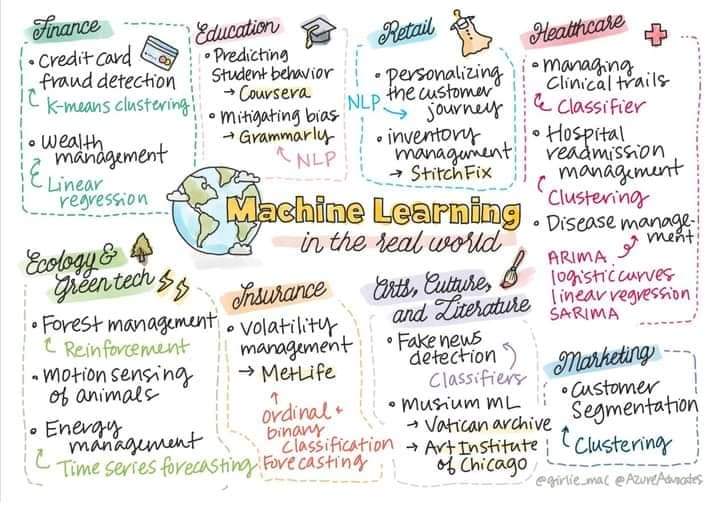 Finance
• Credit card
fraud detection
K-means clustering
• Wealth
management
Linear
regression
Education
• Predicting
Student behavior
→ Coursera
• Mitigating bias
→ Grammarly
NLP
Retail
• personalizing
the customer
journey
NLP
• inventory
management
→ StitchFix
Healthcare
• managing
Clinical trails
Classifier
• Hospital
readmission
management
Clustering
• Disease manage-
ment
ARIMA
logistic curves
linear regression
SARIMA
Machine Learning
in the real world
Ecology &
Green tech
• Forest management
Reinforcement
• motion sensing
of animals
• Energy
management
Time series forecasting
Insurance
• Volatility
management
→ MetLife
Ordinal +
binary
Classification
Forecasting
Arts, Culture,
and Literature
• Fake news
detection
Classifiers
• Musium ML
→ Vatican archive
→ Art Institute
of Chicago
Marketing
• Customer
Segmentation
Clustering
@girlie_mac @AzureAdvocates